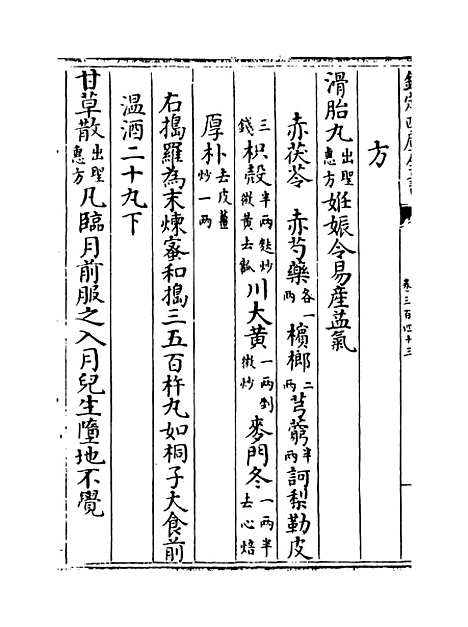 欽定四庫全書
卷三百四十三
方
滑胎丸出聖惠方姙娠令易産益氣
赤茯苓　赤芍藥各一兩　檳榔二兩　芎藭半兩　訶梨勒皮
三錢　枳殼半兩麩炒微黄去瓤　川大黄一兩剉微炒　麥門冬一兩半去心焙
厚朴去皮薑炒一兩
右搗羅為末煉蜜和搗三五百杵丸如桐子大食前
温酒二十丸下
甘草散出聖惠方凡臨月前服之入月兒生墮地不覺